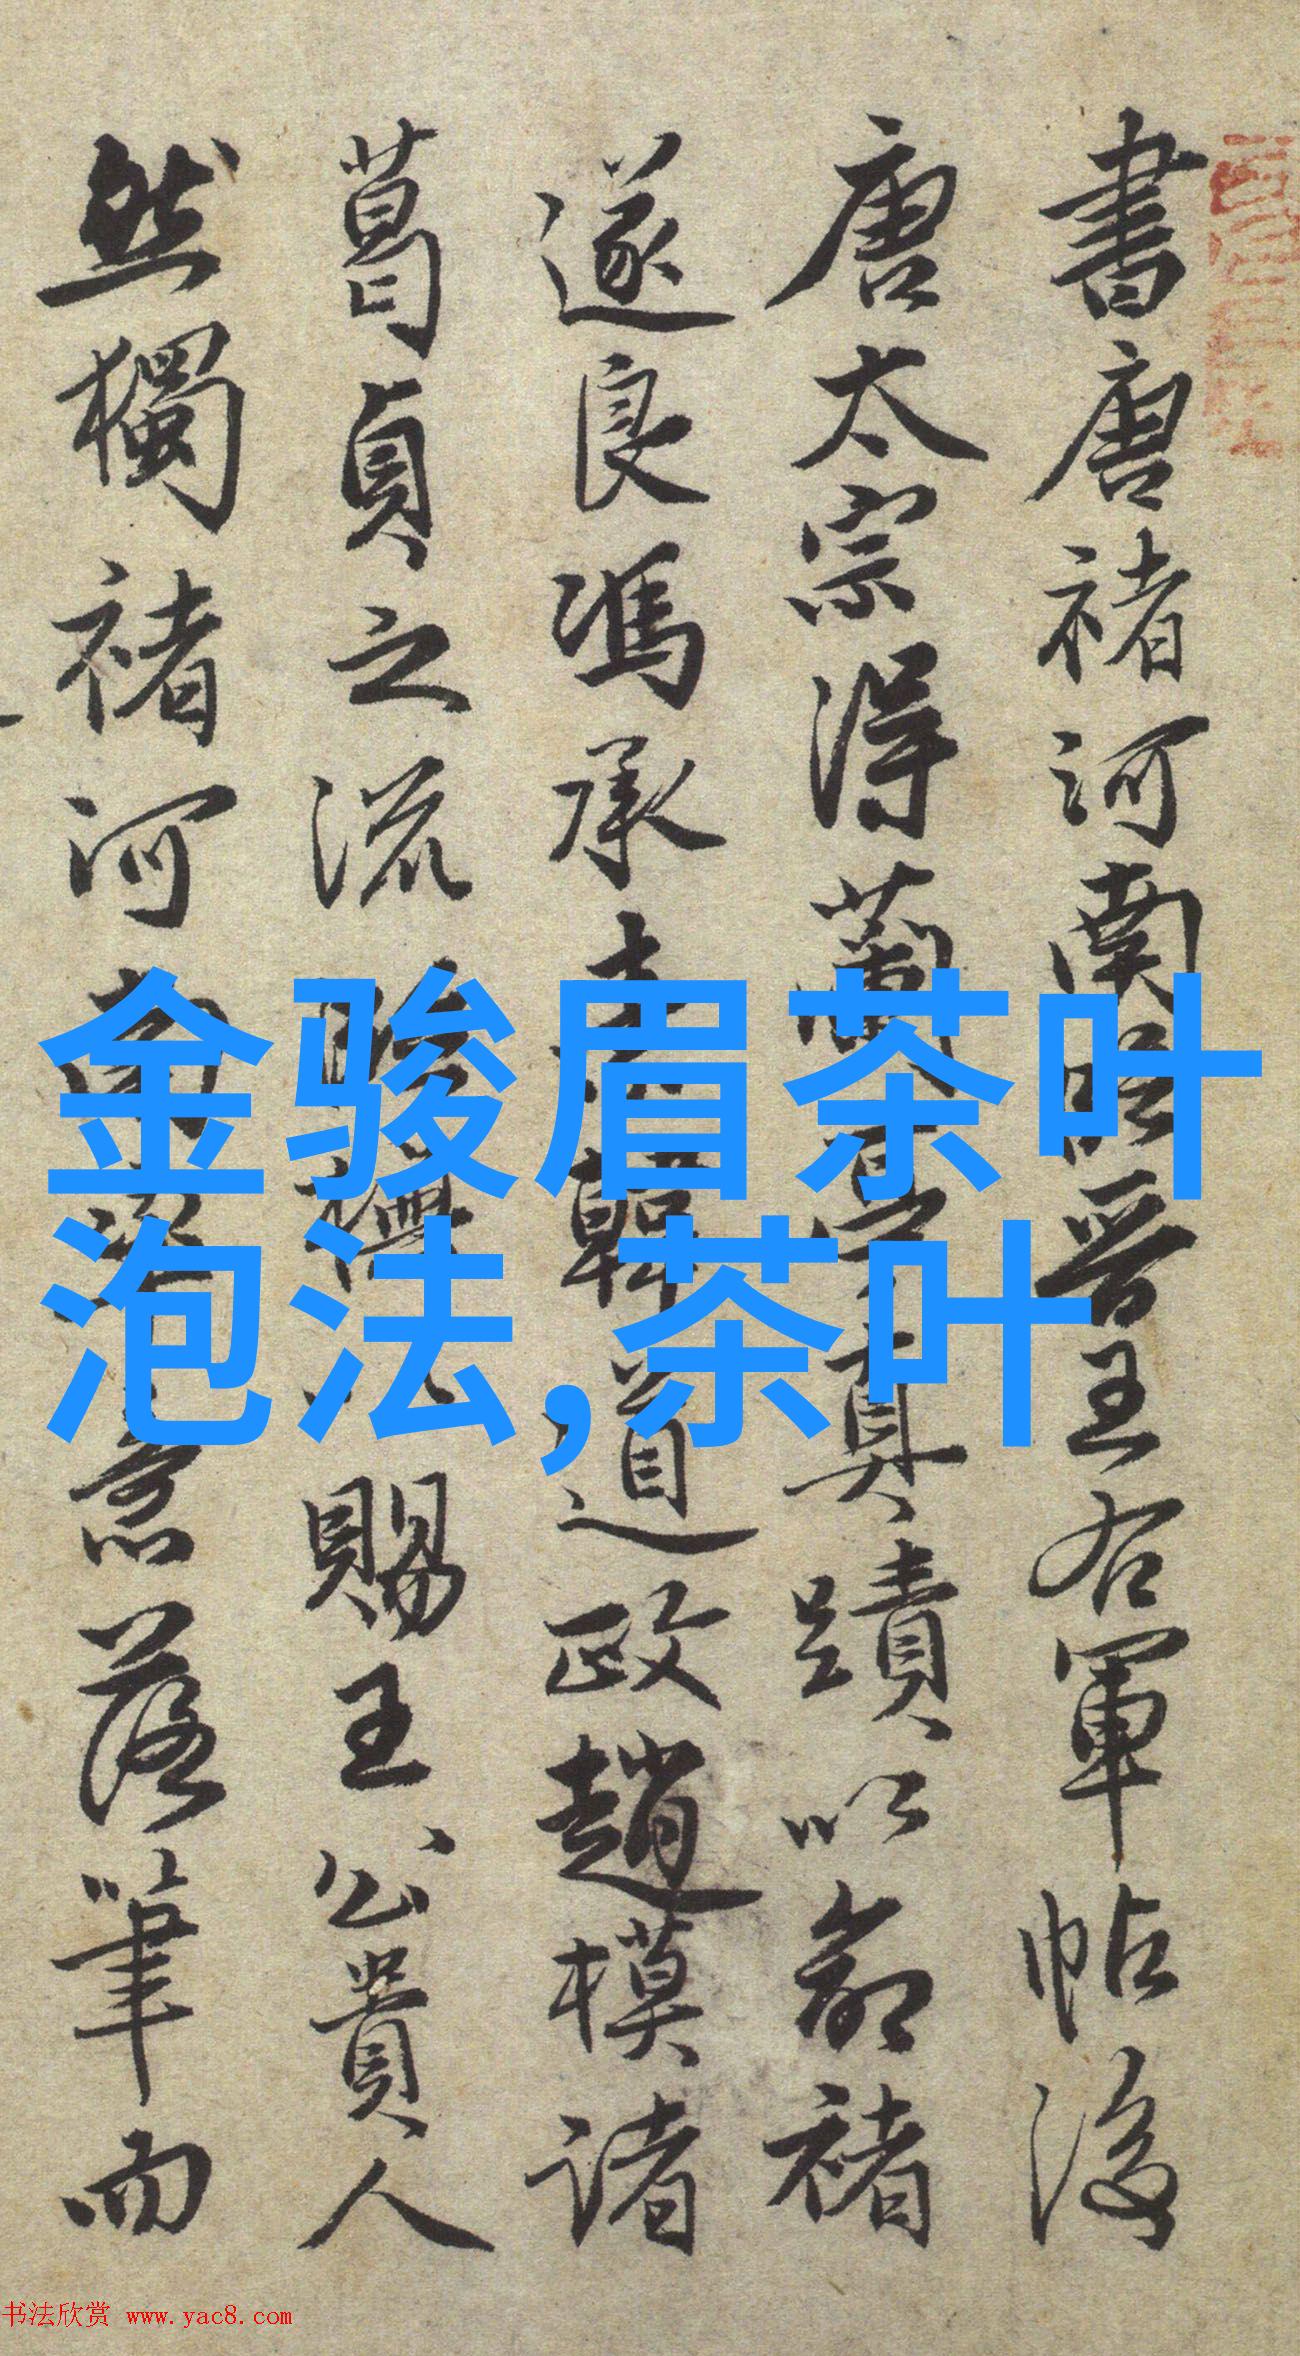 書唐褚河南臨晋王右軍帖後
唐太宗得蘭真蹟以命褚
遂良馮承素韓道政趙模諸
葛貞之流賜王公貴人
然獨褚河南意落筆而
金骏眉茶叶
泡法,茶叶
书法欣赏 www.yac8.com